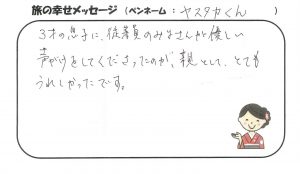 旅の幸せメッセージ（ペンネーム：ヤスタカくん）
3才の息子に、従業員のみなさんが優しい
声がけをしてくださったのが、親として、とても
うれしかったです。